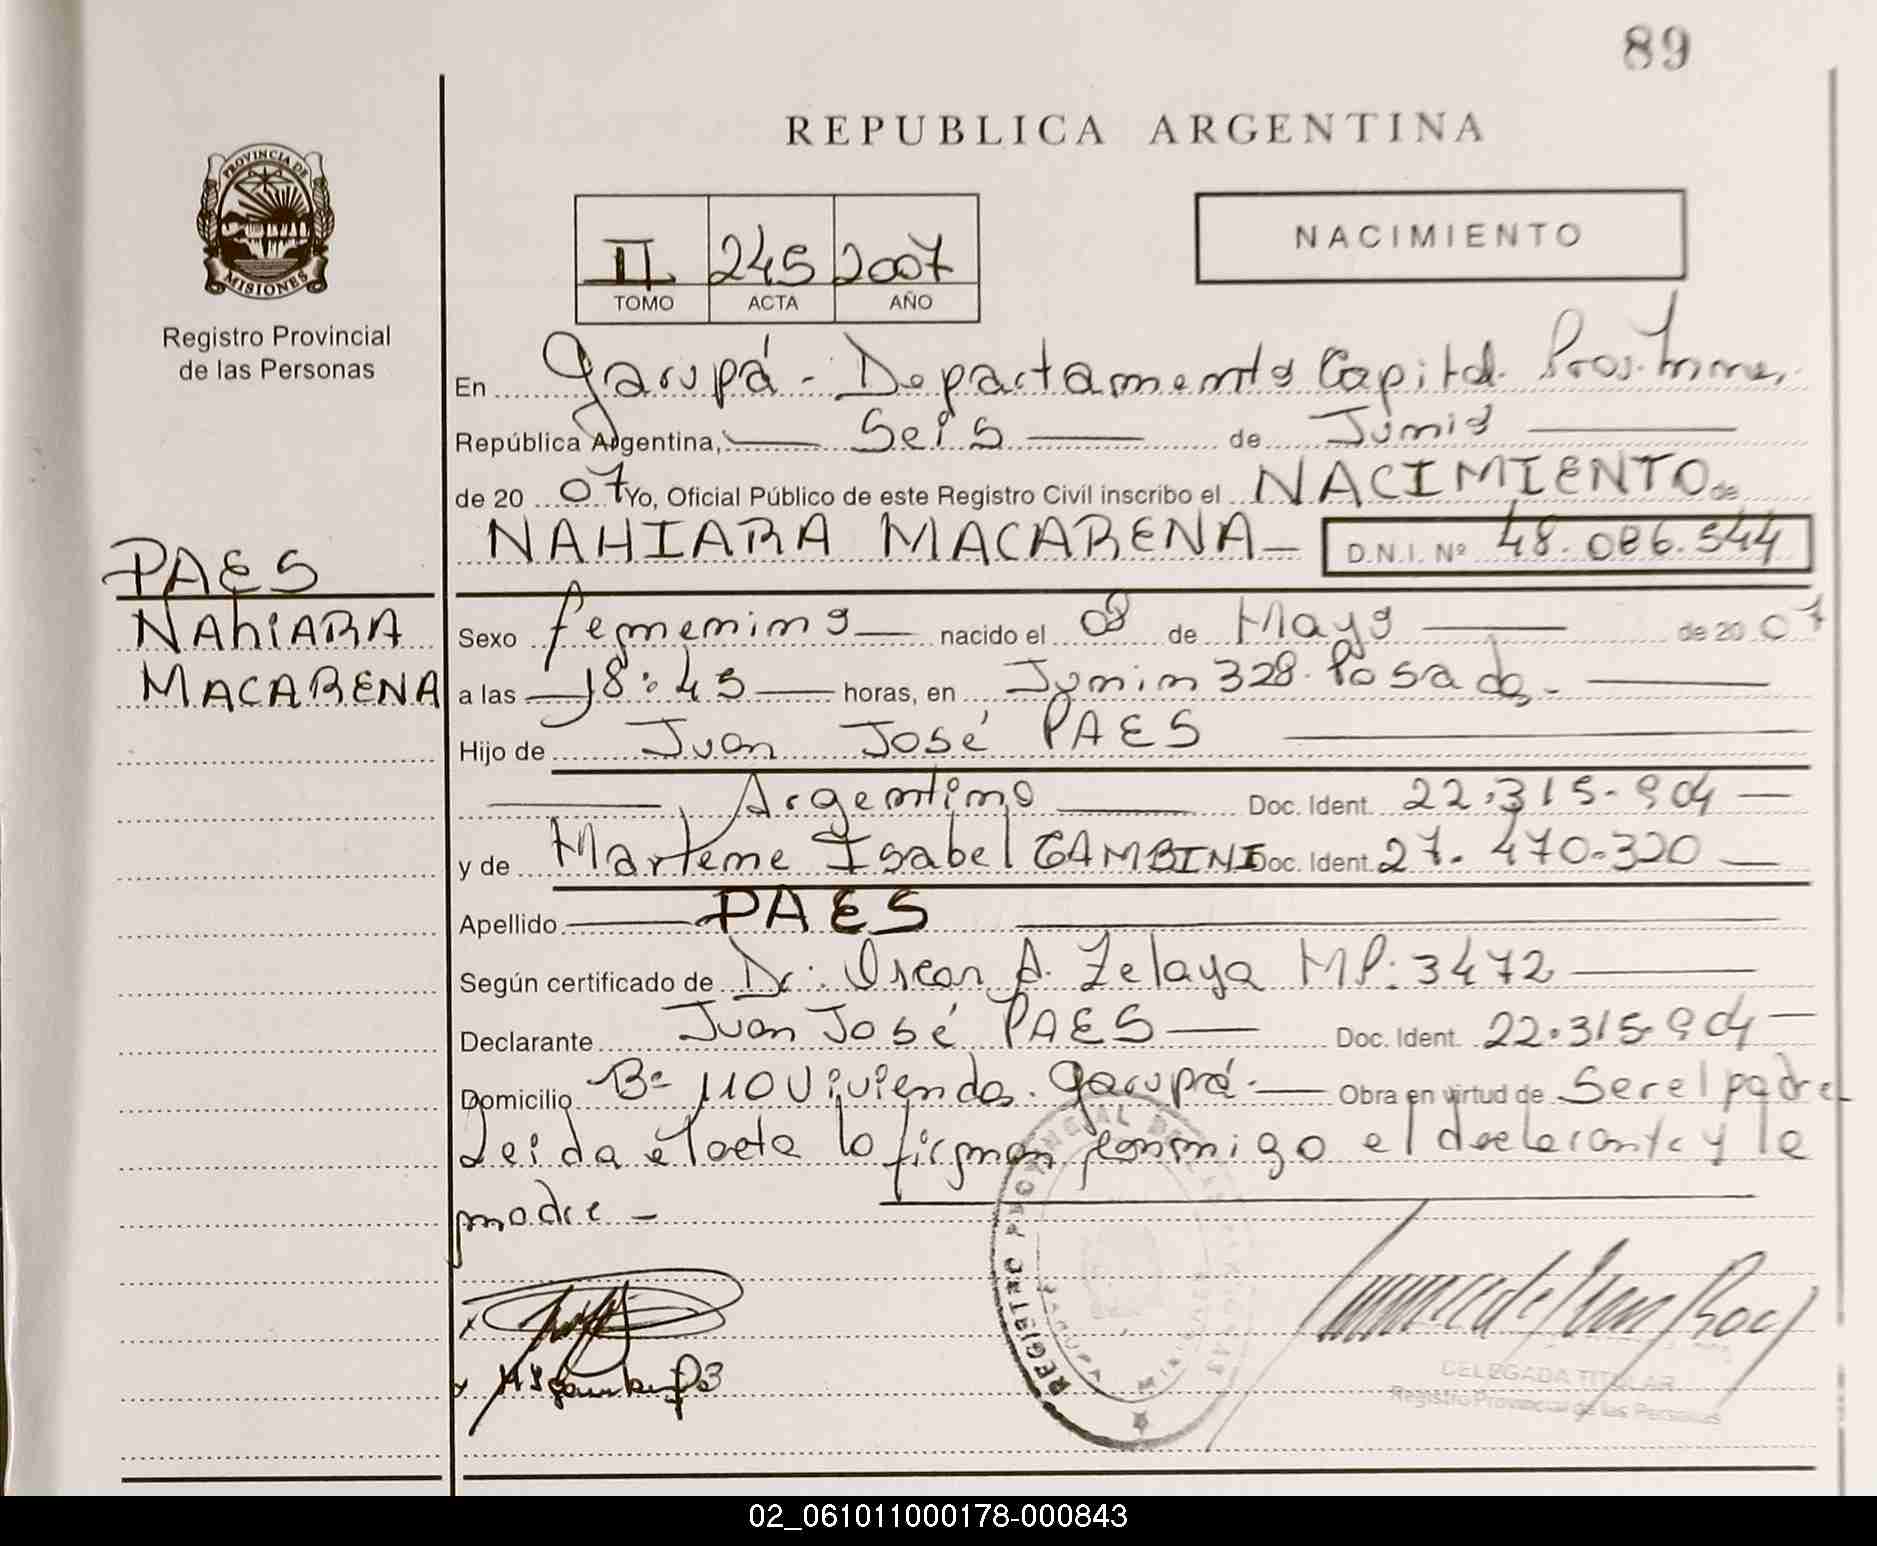 89
REPUBLICA ARGENTINA
PROVINCIA DE
MISIONES
Registro Provincial
de las Personas
II 245 2007
TOMO ACTA AÑO
NACIMIENTO
En Garupá - Departamento Capital. Prov. Mnes.
República Argentina, Seis de Junio
de 20 07 Yo, Oficial Público de este Registro Civil inscribo el NACIMIENTO de
NAHIARA MACARENA D.N.I. Nº 48.086.544
PAES
NAhiARA
MACARENA
Sexo femenino nacido el 08 de Mayo de 20 07
a las 18:45 horas, en Junin 328. Posadas.
Hijo de Juan José PAES
Argentino Doc. Ident. 22.315.904
y de Marlene Isabel GAMBINI Doc. Ident. 27.470.320
Apellido PAES
Según certificado de Dr: Oscar A. Zelaya MP: 3472
Declarante Juan José PAES Doc. Ident. 22.315.904
Domicilio Bº 110 Viviendas. Garupá. Obra en virtud de Ser el padre
Leida el acta lo firman conmigo el declarante y la
madre -
REGISTRO PROVINCIAL DE LAS
GARUPA
DELEGADA TITULAR
Registro Provincial de las Personas
02_061011000178-000843